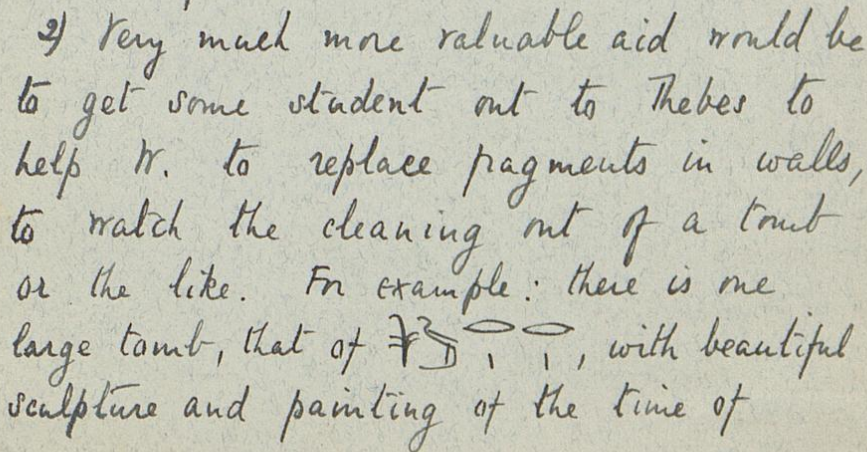 2) Very much more valuable aid would be
to get some student out to Thebes to
help W. to replace fragments in walls,
to watch the cleaning out of a tomb
or the like. For example: there is one
large tomb, that of 𓇓𓅱𓂋𓏤𓂋𓏤, with beautiful
sculpture and painting of the time of